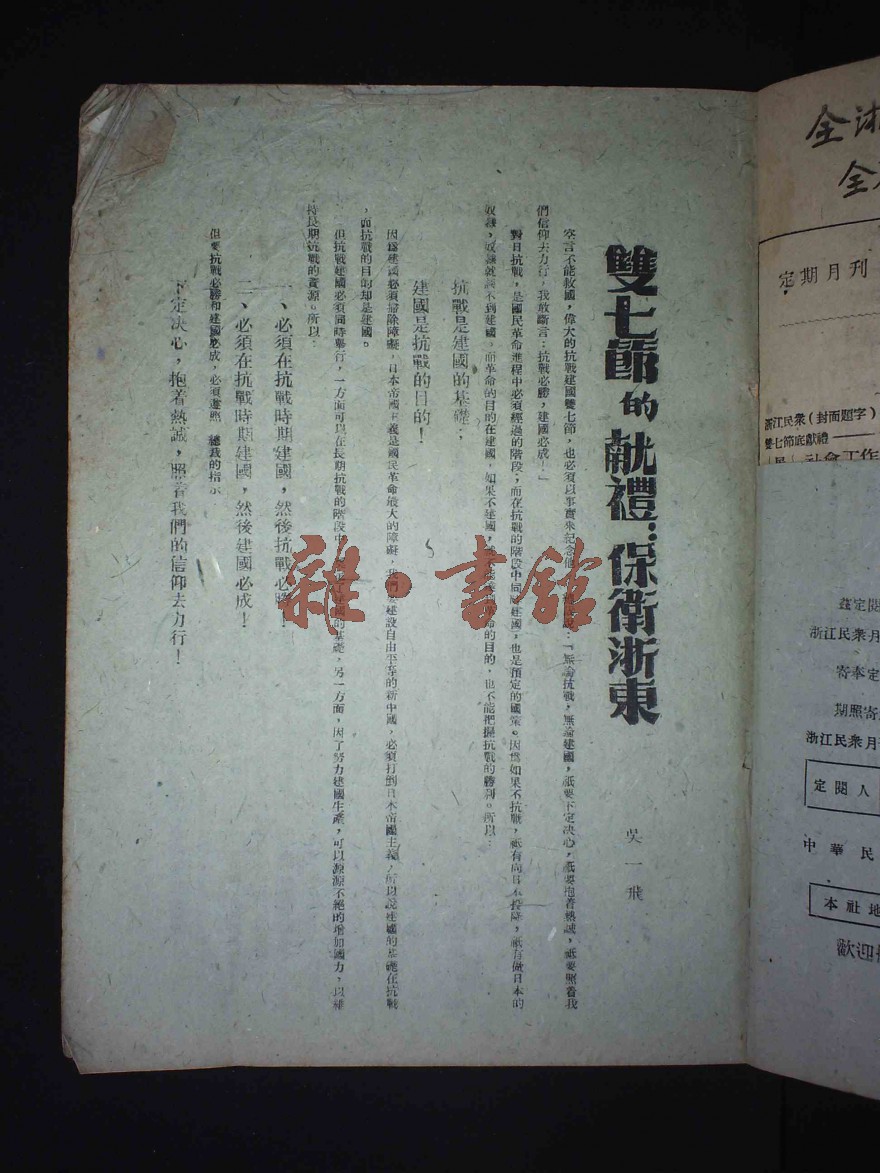 雙七節的献禮：保衛浙東
吳一飛
空言不能救國，偉大的抗戰建國雙七節，也必須以事實來紀念他：「無論抗戰，無論建國，祇要下定决心，祇要抱着熱誠，祇要照着我
們信仰去力行，我敢斷言：抗戰必勝，建國必成！」
對日抗戰，是國民革命進程中必須經過的階段；而在抗戰的階段中同時建國，也是預定的國策。因爲如果不抗戰，祇有向日本投降，祇有做日本的
奴隸，奴隸就談不到建國。而革命的目的在建國，如果不建國，命的目的，也不能把握抗戰的勝利。所以：
抗戰是建國的基礎；
建國是抗戰的目的！
因爲建國必須掃除障礙，日本帝國主義是國民革命最大的障礙，我們要建設自由平等的新中國，必須打倒日本帝國主義，所以說建國的基礎在抗戰
，而抗戰的目的却是建國。
但抗戰建國必須同時舉行，一方面可以在長期抗戰的階段中建國的基礎，另一方面，因了努力建國生產，可以源源不絕的增加國力，以維
持長期抗戰的資源。所以：
一、必須在抗戰時期建國，然後抗戰必勝！
二、必須在抗戰時期建國，然後建國必成！
但要抗戰必勝和建國必成，必須遵照 總裁的指示
下定决心，抱着熱誠，照着我們的信仰去力行！
雜·書館
全
全
定期月刊
浙江民衆（封面題字）
雙七節底獻禮——
社會工作
茲定閱
浙江民衆月
寄奉定
期照寄
浙江民衆月
定閱人
中華民
本社地
歡迎